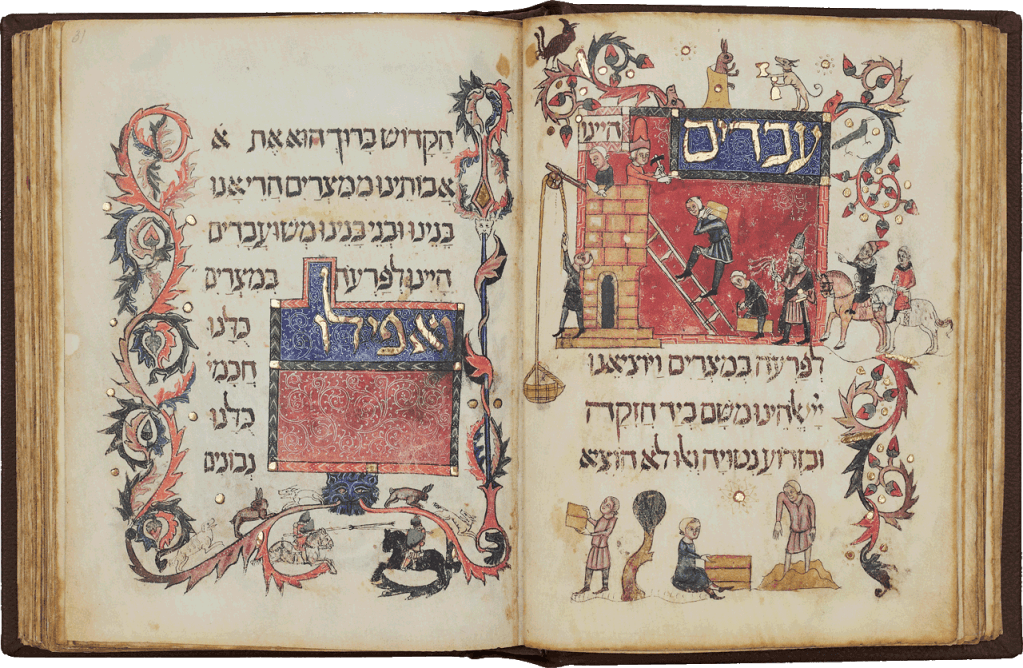 עבדים היינו
לפרעה במצרים ויוציאנו
ייי אלהינו משם ביד חזקה
ובזרוע נטויה ואלו לא הוציא
הקדוש ברוך הוא את א
אבותינו ממצרים הרי אנו
בנינו ובני בנינו משועבדים
היינו לפרעה במצרים
ואפילו כלנו
חכמי
כלנו
נבונים